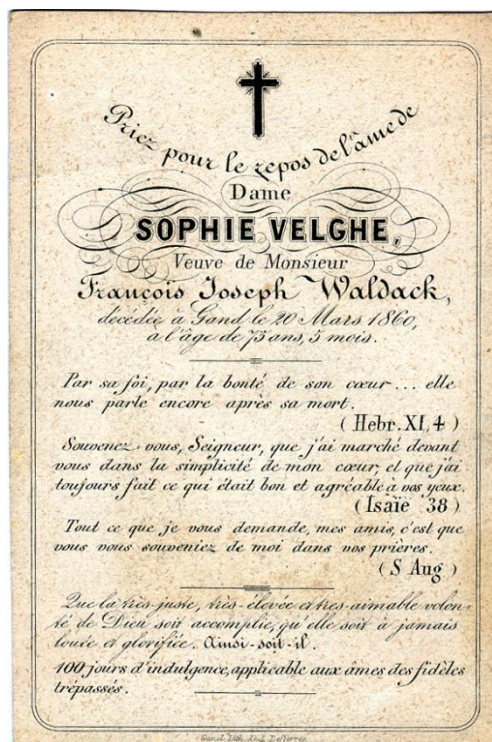 Priez pour le repos de l'âme de
Dame
SOPHIE VELGHE,
Veuve de Monsieur
François Joseph Waldack,
décédée à Gand le 20 Mars 1860,
à l'âge de 75 ans, 5 mois.
Par sa foi, par la bonté de son cœur... elle
nous parle encore après sa mort.
(Hebr. XI, 4)
Souvenez-vous, Seigneur, que j'ai marché devant
vous dans la simplicité de mon cœur, et que j'ai
toujours fait ce qui était bon et agréable à vos yeux.
(Isaïe 38)
Tout ce que je vous demande, mes amis, c'est que
vous vous souveniez de moi dans vos prières.
(S Aug)
Que la très-juste, très-élevée et très-aimable volon-
té de Dieu soit accomplie, qu'elle soit à jamais
louée et glorifiée. Ainsi-soit-il.
100 jours d'indulgence, applicable aux âmes des fidèles
trépassés.
Gand, Lith. de